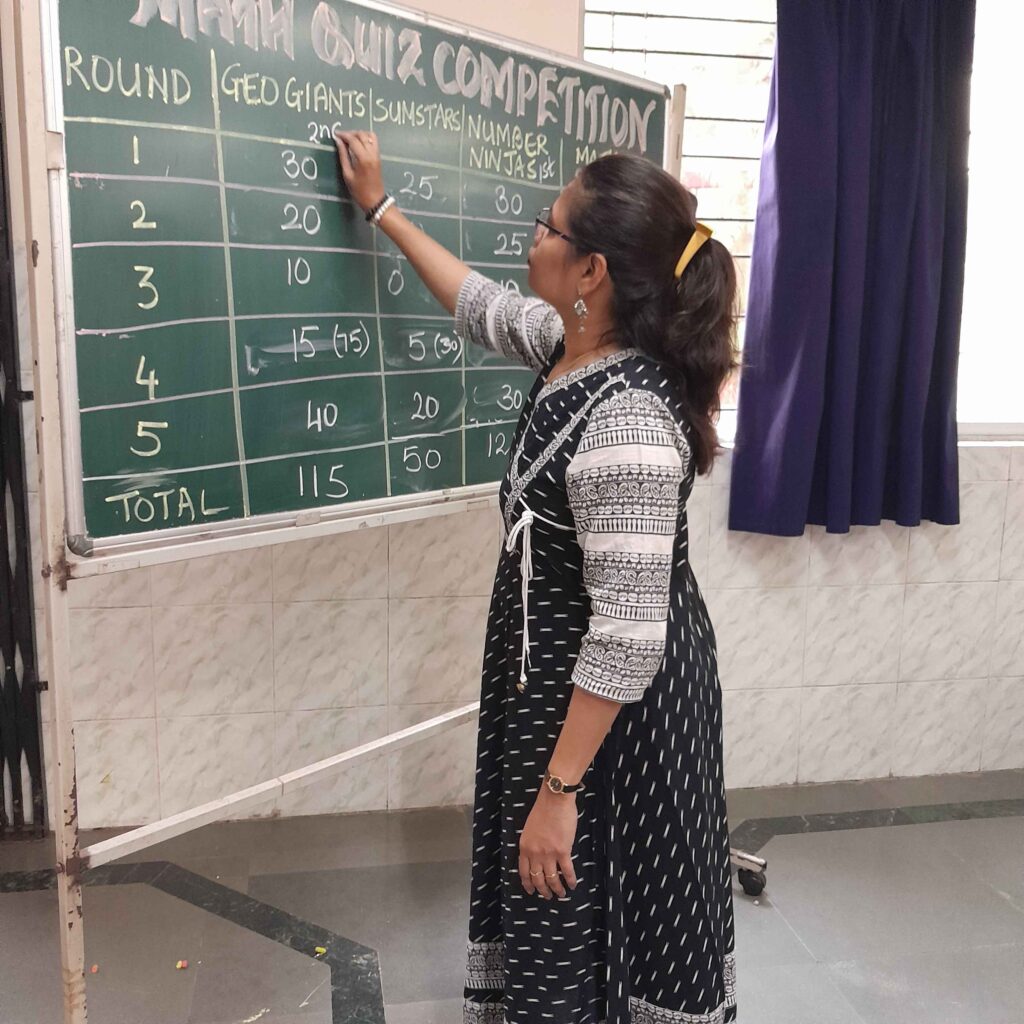 MATH QUIZ COMPETITION
ROUND GEO GIANTS SUMSTARS NUMBER NINJAS 1st
1 30 25 30
2 20 20 25
3 10 0
4 15 (75) 5 (30)
5 40 20 30
TOTAL 115 50